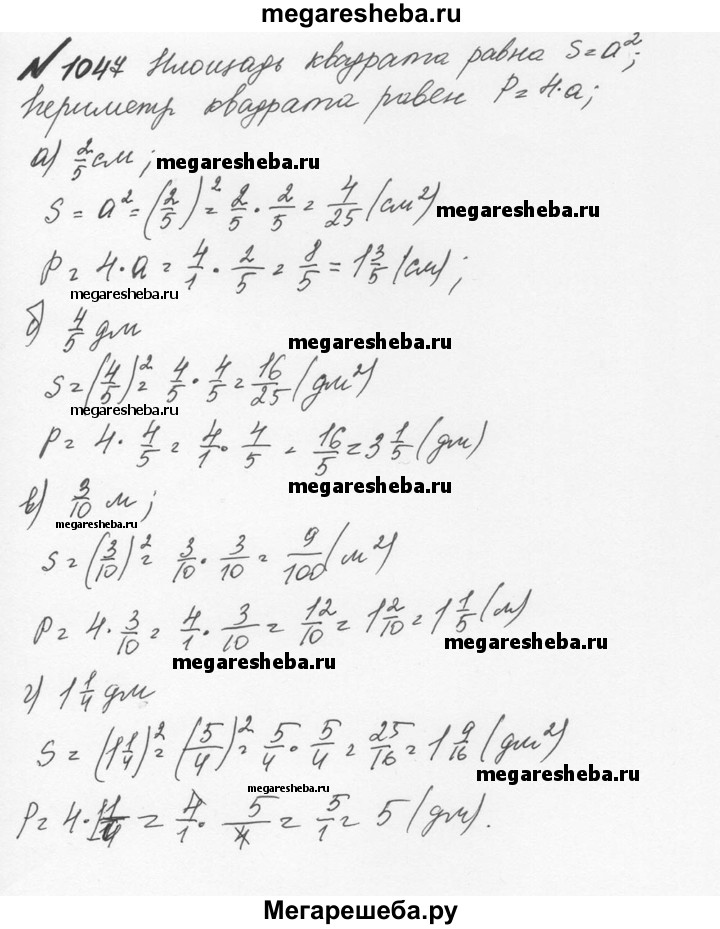 megaresheba.ru
№ 1047 Площадь квадрата равна S = a²;
периметр квадрата равен P = 4·a;
а) 2/5 см; megaresheba.ru
S = a² = (2/5)² = 2/5 · 2/5 = 4/25 (см²) megaresheba.ru
P = 4·a = 4/1 · 2/5 = 8/5 = 1 3/5 (см);
megaresheba.ru
б) 4/5 дм megaresheba.ru
S = (4/5)² = 4/5 · 4/5 = 16/25 (дм²)
megaresheba.ru
P = 4 · 4/5 = 4/1 · 4/5 = 16/5 = 3 1/5 (дм)
в) 3/10 м; megaresheba.ru
megaresheba.ru
S = (3/10)² = 3/10 · 3/10 = 9/100 (м²)
P = 4 · 3/10 = 4/1 · 3/10 = 12/10 = 1 2/10 = 1 1/5 (м)
megaresheba.ru megaresheba.ru
г) 1 1/4 дм
S = (1 1/4)² = (5/4)² = 5/4 · 5/4 = 25/16 = 1 9/16 (дм²)
megaresheba.ru megaresheba.ru
P = 4 · 1 1/4 = 4/1 · 5/4 = 5/1 = 5 (дм).
Мегарешеба.ру